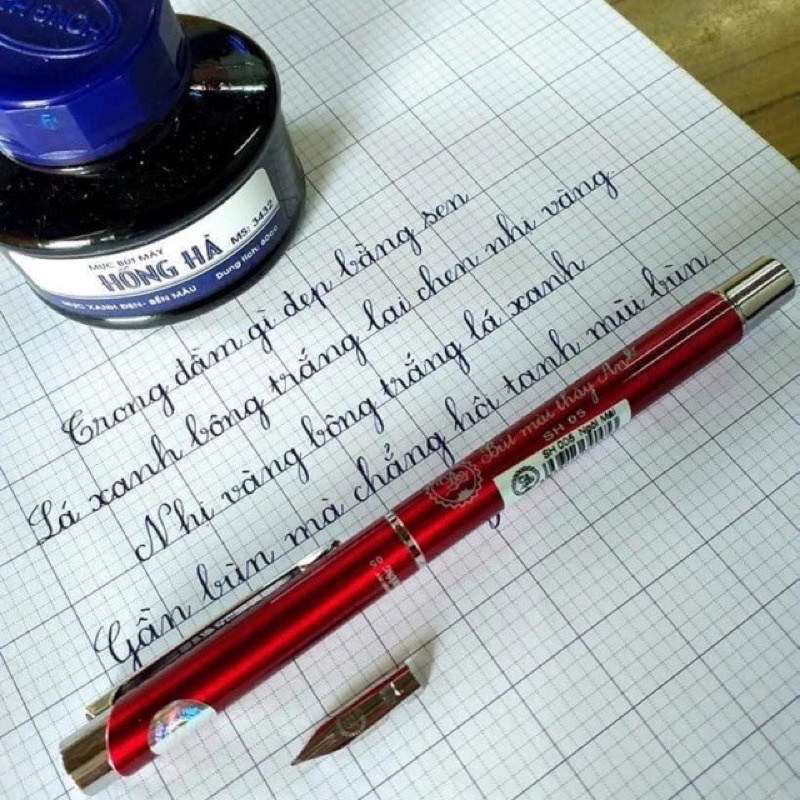 HỒNG HÀ
MỰC BÚT MÁY
HỒNG HÀ
MS: 3432
MỰC XANH ĐEN- BỀN MÀU
Dung tích: 60cc
Trong đầm gì đẹp bằng sen
Lá xanh bông trắng lại chen nhị vàng
Nhị vàng bông trắng lá xanh
Gần bùn mà chẳng hôi tanh mùi bùn.
Bút mài thầy Ánh
SH 05
SH 005 Ngòi Mài